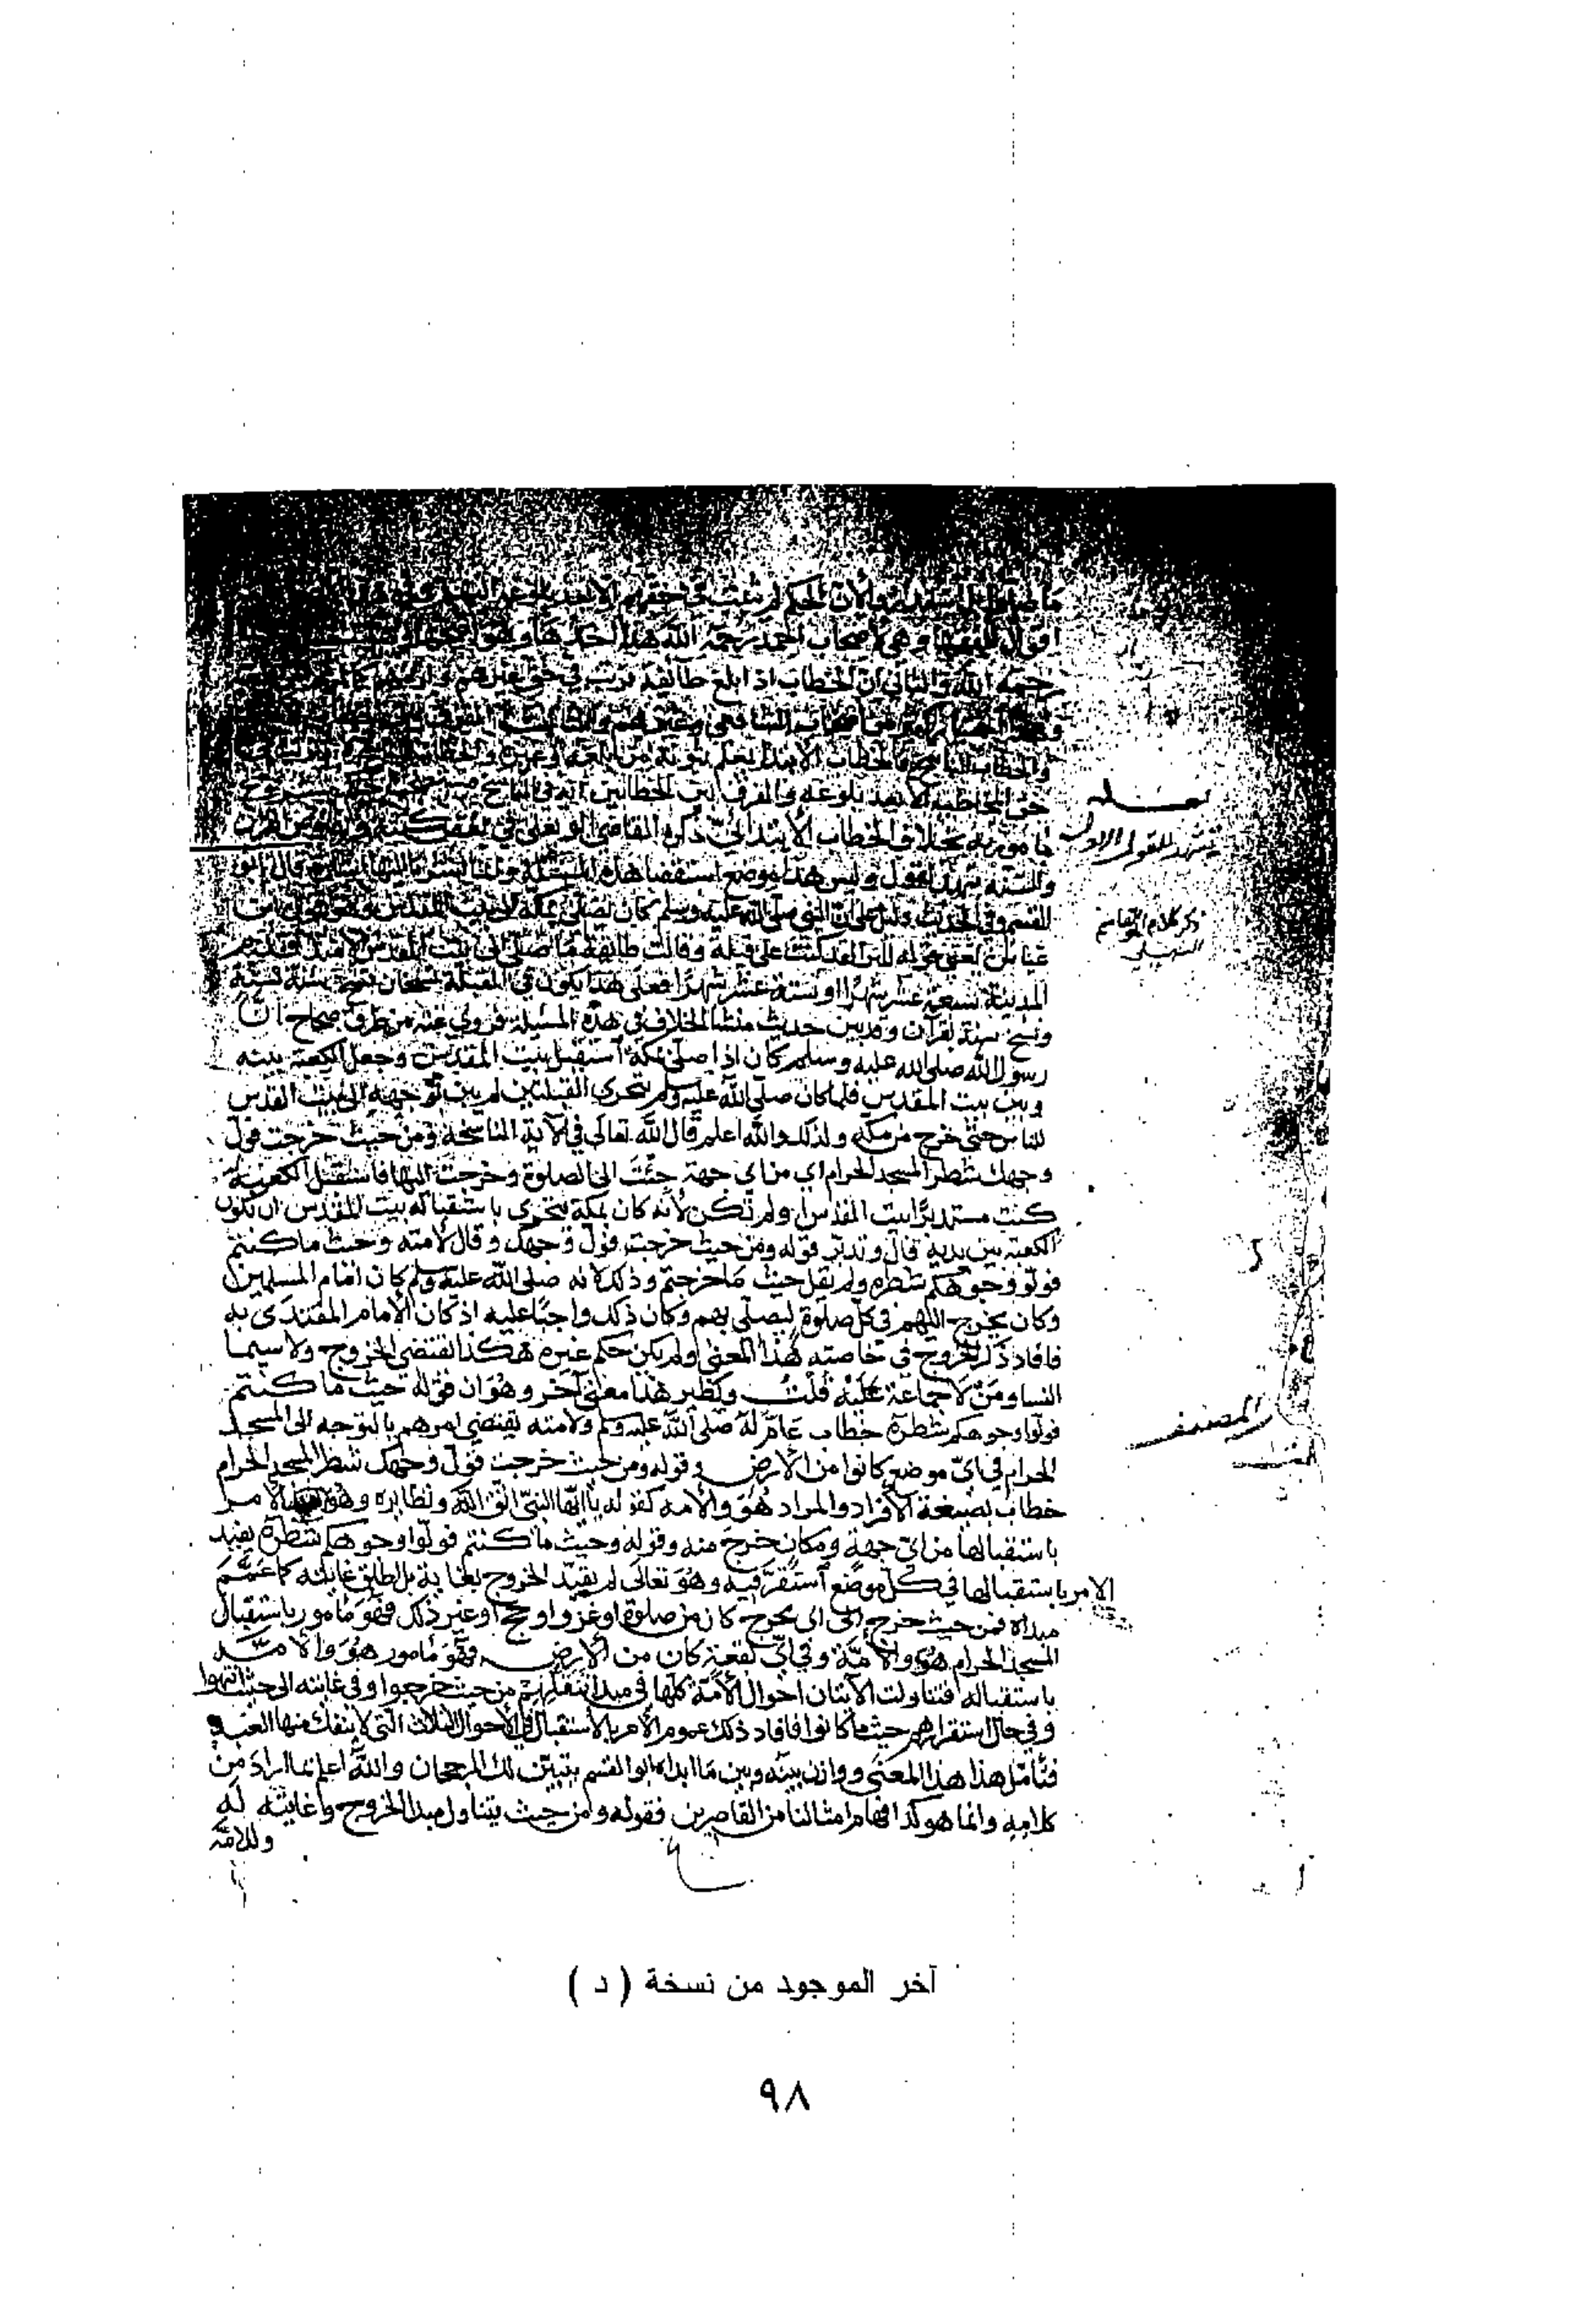 اقوال الفقها وهي لاصحاب احمد رحمه الله هذا احدها وهو
رحمه الله والثاني ان الخطاب اذا بلغ طائفة ترتب في حق غيرهم
من اصحاب الشافعي وغيرهم والثالث الفرق بين الخطاب
والخطاب الناسخ فالخطاب الابتدائي يعم ثبوته من بلغه وغيره والخطاب
حق المخاطب الا بعد بلوغه والفرق بين الخطابين انه في الناسخ مستصحب
مامور به بخلاف الخطاب الابتدائي ذكره القاضي ابو يعلى في بعض كتبه ونصوص القران
والسنة تشهد لقول وليس هذا موضع استقصا هذه المسئلة وانما اشرنا اليها اشارة قال ابو
القسم وفي الحديث دليل على ان النبي صلى الله عليه وسلم كان يصلي بمكة الى بيت المقدس وهو قول ابن
عباس يعني قوله للبرا لقد كنت على قبلة وقالت طائفة ما صلى الى بيت المقدس الا منذ قدم
المدينة سبعة عشر شهرا او ستة عشر شهرا فعلى هذا يكون في القبلة نسخان نسخ سنة بسنة
ونسخ سنة بقرآن وقد بين حديث منشا الخلاف في هذه المسئلة فروي عنه من طرق صحاح ان
رسول الله صلى الله عليه وسلم كان اذا صلى بمكة استقبل بيت المقدس وجعل الكعبة بينه
وبين بيت المقدس فلما كان صلى الله عليه وسلم يتحرى القبلتين لم يبن توجهه الى بيت المقدس
للناس حتى خرج من مكة ولذلك والله اعلم قال الله تعالى في الآية الناسخة ومن حيث خرجت فول
وجهك شطر المسجد الحرام اي من اي جهة جئت الى الصلوة وخرجت اليها فاستقبل الكعبة
كنت مستدبرا بيت المقدس او لم تكن لأنه كان بمكة يتحرى باستقباله بيت المقدس ان تكون
الكعبة بين يديه قال وتدبر قوله ومن حيث خرجت فول وجهك وقال لأمته وحيث ما كنتم
فولوا وجوهكم شطره ولم يقل حيث ما خرجتم وذلك لأنه صلى الله عليه وسلم كان امام المسلمين
وكان يخرج اليهم في كل صلوة ليصلي بهم وكان ذلك واجبا عليه اذ كان الأمام المقتدى به
فافاد ذكر الخروج في خاصته هذا المعنى ولم يكن حكم غيره هكذا يقتضي الخروج ولا سيما
النسا ومن لا جماعة عليه قلت ويظهر هنا معنى آخر وهو ان قوله حيث ما كنتم
فولوا وجوهكم شطره خطاب عام له صلى الله عليه وسلم ولأمته يقتضي امرهم بالتوجه الى المسجد
الحرام في اي موضع كانوا من الأرض وقوله ومن حيث خرجت فول وجهك شطر المسجد الحرام
خطاب بصيغة الأفراد والمراد هو والأمة كقوله يا ايها النبي اتق الله ونظايره وهو يفيد الأمر
باستقبالها من اي جهة ومكان خرج منه وقوله وحيث ما كنتم فولوا وجوهكم شطره يفيد
الامر باستقبالها في كل موضع استقر فيه وهو تعالى لم يقيد الخروج بغاية بل اطلق غايته كما عمم
مبدأه فمن حيث خرج الى اي مخرج كان من صلوة او غزو او حج او غير ذلك فهو مأمور باستقبال
المسجد الحرام هو والأمة وفي اي بقعة كان من الأرض فهو مأمور هو والأمة
باستقباله فتناولت الآيتان احوال الأمة كلها في مبدأ تنقلهم من حيث خرجوا وفي غايته الى حيث انتهوا
وفي حال استقرارهم حيث ما كانوا فافاد ذلك عموم الأمر بالأستقبال في الأحوال الثلاث التي لا ينفك منها العبد
فتأمل هذا هذا المعنى ووازن بينه وبين ما ابداه ابو القسم يتبين لك الرجحان والله اعلم بما اراد من
كلامه وانما هو كد افهام امثالنا من القاصرين فقوله ومن حيث يتناول مبدأ الخروج وغايته له
وللأمة
تشهد للقول الاول
ذكر كلام ابو القاسم
السهيلي
المصنف
آخر الموجود من نسخة ( د )
٩٨